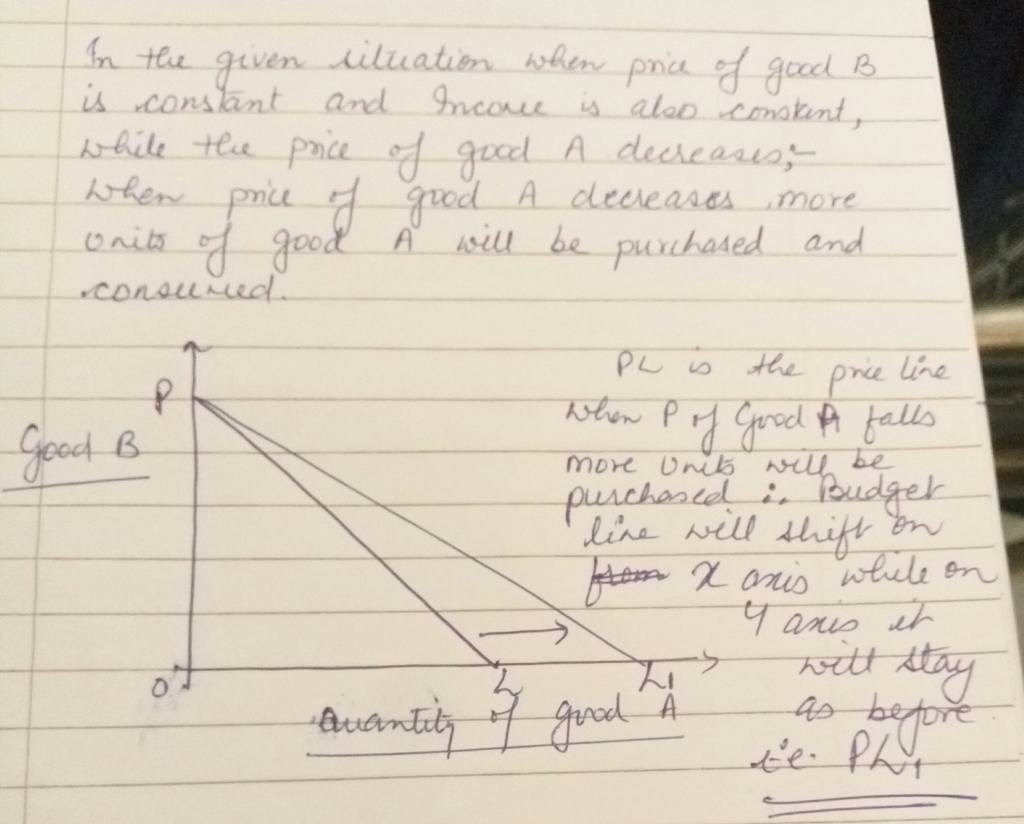 In the given situation when price of good B
is constant and Income is also constant,
while the price of good A decreases;-
when price of good A decreases more
units of good A will be purchased and
consumed.
P
Good B
O
L
L1
Quantity of good A
PL is the price line
when P of Good A falls
more units will be
purchased ∴ Budget
line will shift on
from X axis while on
Y axis it
will stay
as before
i.e. PL1